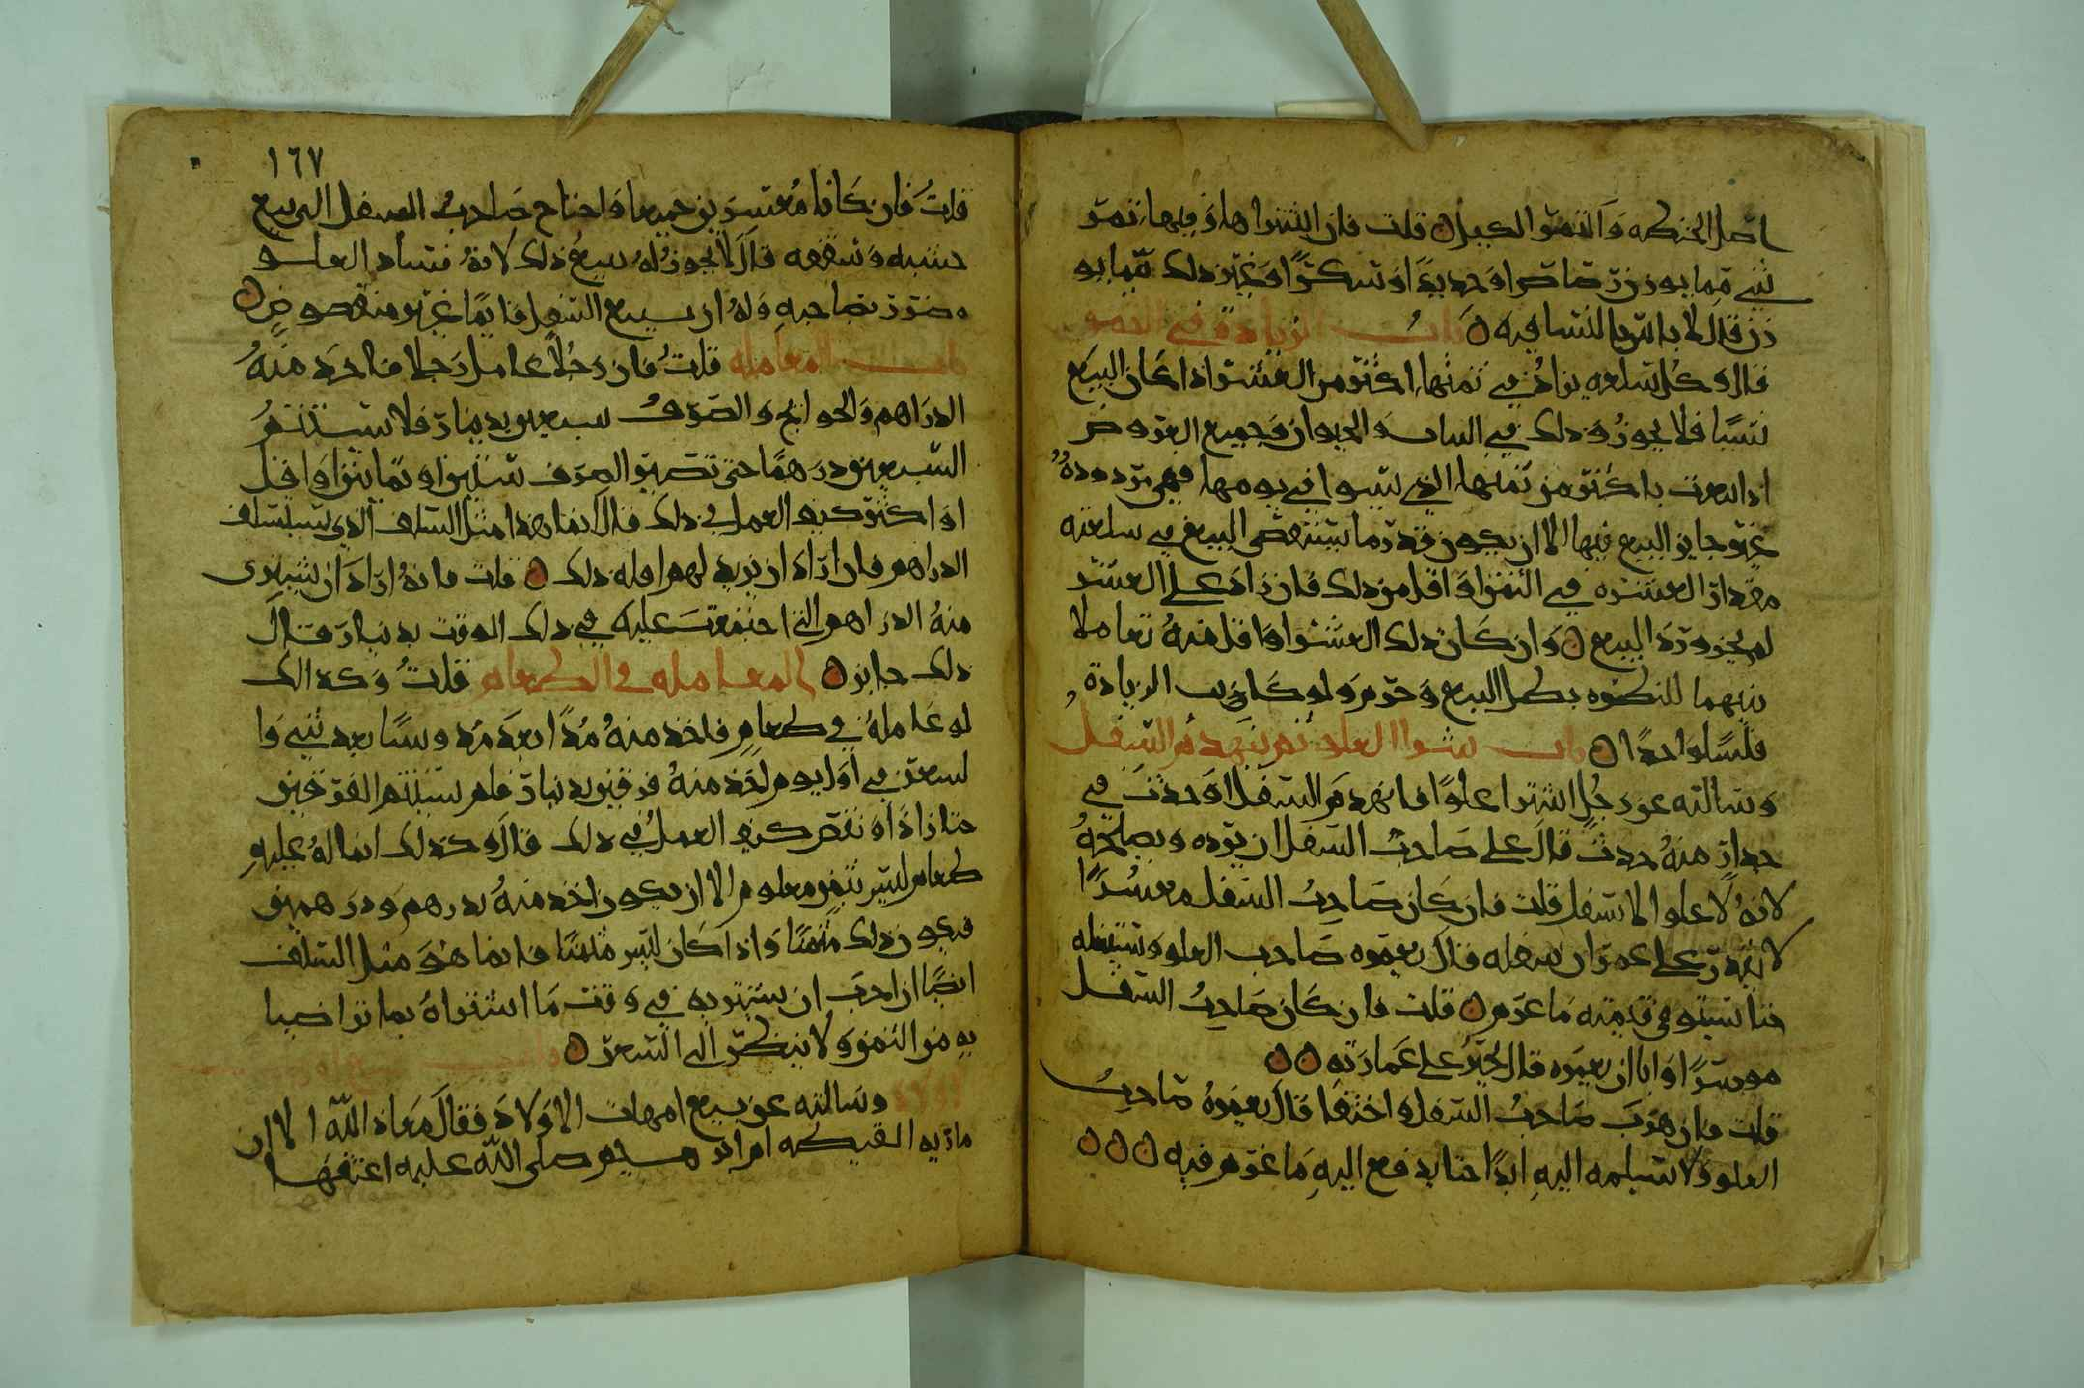 اصل الحنطه والتمر الكيل قلت فان اشتراها وفيها تمر
شي مما يوزن رصاصا او حديدا او سكرا او غير ذلك مما يو
زن قال لا باس بالنسا فيه باب الزيادة في
قال وكل سلعه يزاد في ثمنها اكثر من العشر اذا كان البيع
نسيا فلا يجوز وذلك في الثياب والحيوان وجميع العروض
اذا بيعت باكثر من ثمنها الذي تسوا في يومها فهي مردودة
غير جايز البيع فيها الا ان يكون قدر ما ينتقص البيع في سلعته
مقدار العشره في الثمن او اقل من ذلك فان زاد على العشر
لم يجز ورد البيع وان كان ذلك العشر او اقل منه تعاملا
بينهما للنظره بطل البيع وحرم ولو كانت الزيادة
فلسا واحدا باب شرا العلو ثم ينهدم السفل
وسالته عن رجل اشترا علوا فانهدم السفل او حدث في
جدار منه حدث قال على صاحب السفل ان يرده ويصلحه
لانه لا علو الا بسفل قلت فان كان صاحب السفل معسرا
لا يقدر على عمران سفله قال يعمره صاحب العلو ويستغله
حتا يستوفي قيمته ما غرم قلت فان كان صاحب السفل
موسرا وابا ان يعمره قال يجبر على عمارته
قلت فان هرب صاحب السفل واختفا قال يعمره صاحب
العلو ولا يسلمه اليه ابدا حتا يدفع اليه ما غرم فيه
١٦٧
قلت فان كانا معسرين جميعا واحتاج صاحب السفل الى بيع
خشبه وشقفه قال لا يجوز له بيع ذلك لانه فساد العلو
وضرر بصاحبه وله ان يبيع السفل قايما غير منقوض
باب المعامله قلت فان رجلا عامل رجلا فاخذ منه
الدراهم والحوايج والصرف سبعين بدينار فلا يستتم
السبعين درهما حتى تصير الصرف ستين او ثمانين او اقل
او اكثر كيف العمل في ذلك قال انما هذا مثل السلف الذي يتسلف
الدراهم فان اراد ان يزيد لهم او له ذلك قلت فانه اراد ان يشتري
منه الدراهم التي اجتمعت عليه في ذلك الوقت بدينار قال
ذلك جايز المعامله في الطعام قلت وكذالك
لو عامله في طعام فاخذ منه مدا بعد مد وشيا بعد شي وا
لسعر في اول يوم اخذ منه فرقين بدينار فلم يستتم الفرقين
حتا زاد او نقص كيف العمل في ذلك قال وكذلك انما له عليه
طعام ليس بثمن معلوم الا ان يكون اخذ منه بدرهم ودرهمين
فيكون ذلك مثمنا واذا كان ليس مثمنا فانما هو مثل السلف
ايضا ان احب ان يشتريه في وقت ما اشتراه بما تراضيا
به من الثمن ولا ينظر الى السعر
وسالته عن بيع امهات الاولاد فقال معاذ الله الا ان
ماريه القبطيه ام ابراهيم صلى الله عليه اعتقها